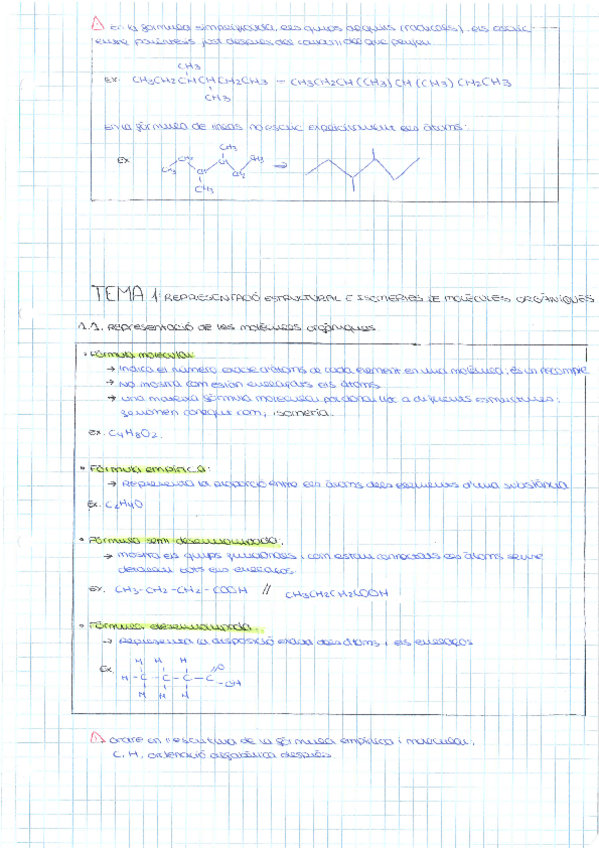 ⚠ En la fórmula simplificada, els grups alquils (radicals), els escric
entre parèntesis just després del carboni del que pengen
CH3
ex: CH3CH2CHCHCH2CH3 – CH3CH2CH(CH3)CH(CH3)CH2CH3
CH3
En la fórmula de no escric explícitament els àtoms:
Ex
CH3
CH2 CH CH3
CH3 CH CH2 →
CH3
TEMA 1: REPRESENTACIÓ ESTRUCTURAL E ISOMERIES DE MOLÈCULES ORGÀNIQUES
1.1. Representació de les molècules orgàniques
• Fórmula molecular:
→ Indica el número exacte d'àtoms de cada element en una molècula; és un recompte
→ No mostra com estan enllaçats els àtoms
→ Una mateixa fórmula molecular pot donar lloc a diferents estructures;
fenomen conegut com, isomeria.
ex. C4H8O2.
• Fórmula empírica:
→ Representa la proporció entre els àtoms dels elements d'una substància
Ex. C2H4O
• Fórmula semi desenvolupada:
→ mostra els grups funcionals i com estan connectats els àtoms sense
detallar tots els enllaços.
ex. CH3-CH2-CH2-COOH // CH3CH2CH2COOH
• Fórmula desenvolupada:
→ Representa la disposició exacta dels àtoms i els enllaços
Ex.
H H H O
H-C-C-C-C-OH
H H H
⚠ ordre en l'escriptura de la fórmula empírica i molecular,
C, H, ordenació alfabètica després.